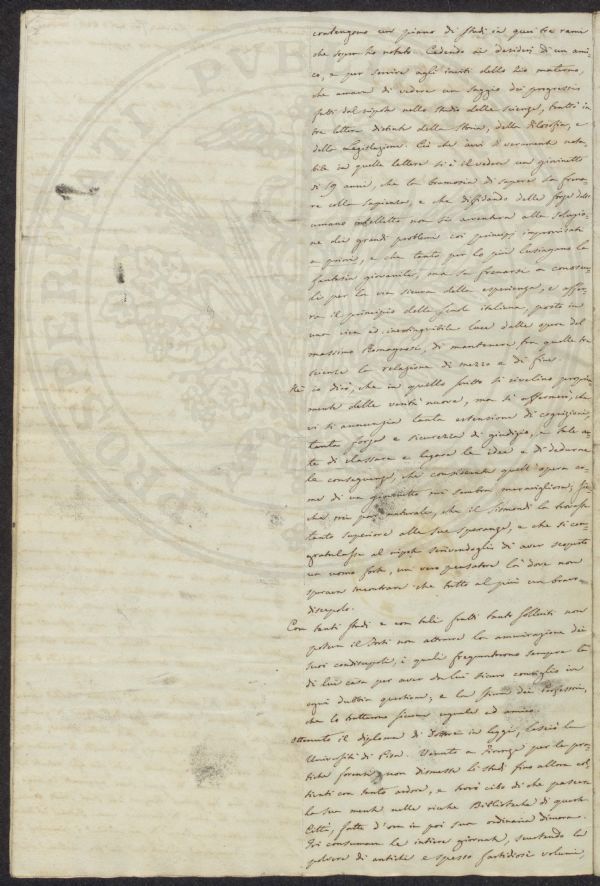 contengono un piano di studi in quei tre rami
che sopra ho notato. Cedendo ai desideri di un ami-
co, e per servire agli inviti dello zio materno,
che amava di vedere un saggio dei progressi
fatti dal nipote nello studio delle scienze, trattò in
tre lettere distinte della Storia, della Filosofia, e
della Legislazione. Ciò che avvi di veramente nota-
bile in quelle lettere si è il vedere un giovinetto
di 19 anni, che la bramosia di sapere sa frena-
re colla sapienza, e che diffidando delle forze dell'
umano intelletto non si avventura alla soluzio-
ne dei grandi problemi coi principj improvvisati
a priori, e che tanto per lo più lusingano la
fantasia giovanile, ma sa frenarsi a conosce-
re per la via sicura della esperienza, e affer-
ra il principio della scuola italiana, posto in
una viva ed inestinguibile luce dalle opere del
massimo Romagnosi, di mantenere fra quelle tre
scienze la relazione di mezzo e di fine.
Nè io dirò, che in quello scritto si rivelino propria-
mente delle verità nuove, ma si affermerò, che
vi si annunzia tanta estensione di cognizioni,
tanta forza e sicurezza di giudizio, e tale ar-
te di classare e legare le idee e di dedurne
le conseguenze, che considerata quell'opera co-
me di un giovinetto mi sembra maravigliosa; per-
chè mi par naturale, che il Sismondi la trovasse
tanto superiore alle sue speranze, e che si con-
gratulasse al nipote scrivendogli di aver scoperto
un uomo forte, un vero pensatore là dove non
sperava incontrare che tutto al più un bravo
discepolo.
Con tanti studi e con tali frutti tanto solleciti non
poteva il Forti non attrarre la ammirazione dei
suoi condiscepoli, i quali frequentarono sempre la
di lui casa per aver da lui sicuro consiglio in
ogni dubbia questione; e la stima dei Professori,
che lo trattarono siccome uguale ed amico.
Ottenuto il diploma di Dottore in leggi, lasciò la
Università di Pisa. Venuto a Firenze per le pra-
tiche forensi, non dismesse li studi fino allora col-
tivati con tanto ardore, e trovò cibo di che pascere
la sua mente nelle ricche Biblioteche di questa
Città, fatte d'ora in poi sua ordinaria dimora.
Ivi consumava le intiere giornate, svolgendo la
polvere di antichi e spesso fastidiosi volumi,